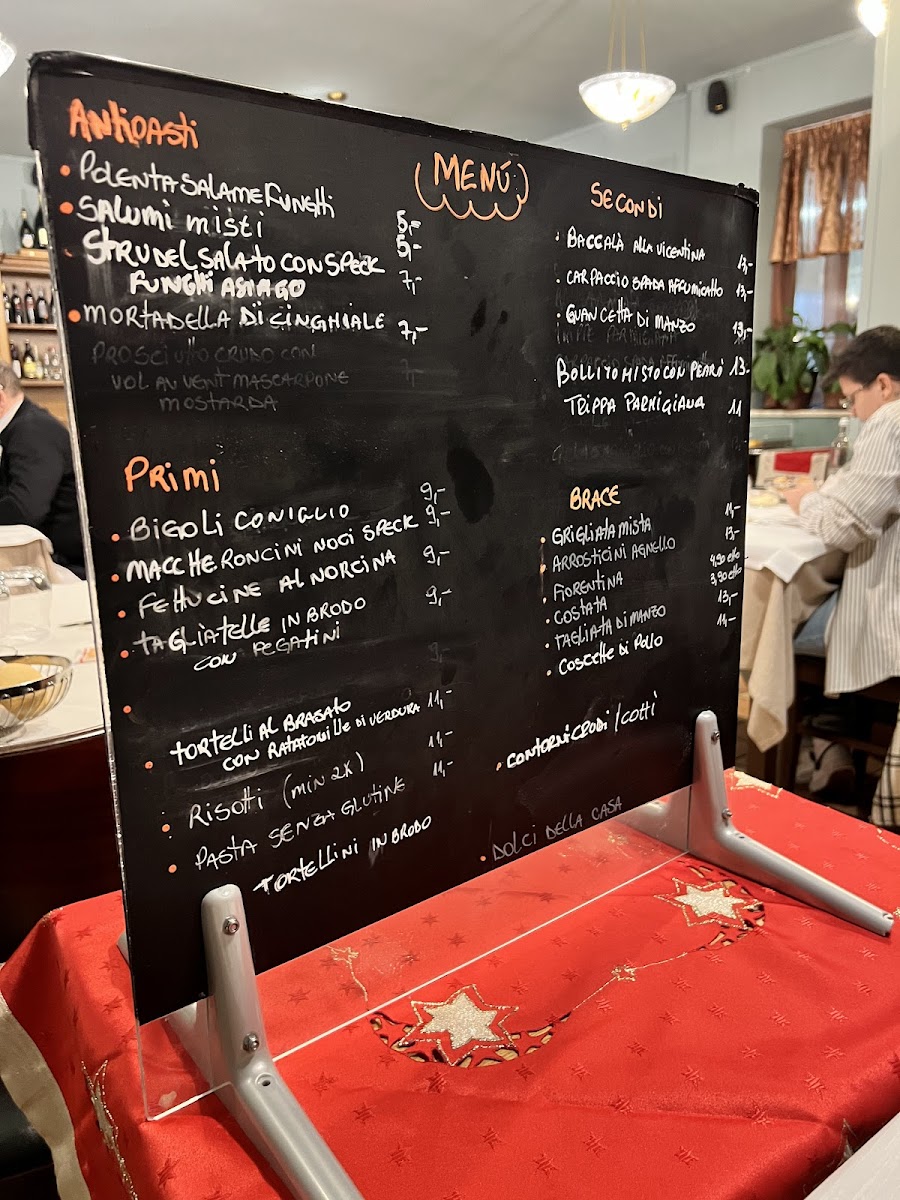 MENÚ
ANTIPASTI
• POLENTA SALAME FUNGHI 5,-
• SALUMI MISTI 5,-
STRUDEL SALATO CON SPECK 7,-
FUNGHI ASIAGO
• MORTADELLA DI CINGHIALE 7,-
PROSCIUTTO CRUDO CON 7,
VOL AU VENT MASCARPONE
MOSTARDA
PRIMI
• BIGOLI CONIGLIO 9,-
• MACCHERONCINI NOCI SPECK 9,-
• FETTUCINE AL NORCINA 9,-
• TAGLIATELLE IN BRODO 9,-
CON FEGATINI
• TORTELLI AL BRASATO
CON RATATOUILLE DI VERDURA 11,-
• RISOTTI (MIN 2X) 11,-
• PASTA SENZA GLUTINE 11,-
TORTELLINI IN BRODO
SECONDI
• BACCALÀ ALLA VICENTINA 13,-
• CARPACCIO SPADA AFFUMICATO 13,-
• GUANCETTA DI MANZO 13,-
BOLLITO MISTO CON PEARÀ 13-
TRIPPA PARMIGIANA 11
BRACE
• GRIGLIATA MISTA
• ARROSTICINI AGNELLO 13-
• FIORENTINA 4,90 etto
• COSTATA 3,90 etto
• TAGLIATA DI MANZO 13,-
• COSCETTE DI POLLO 11,-
• CONTORNI CRUDI/COTTI
• DOLCI DELLA CASA